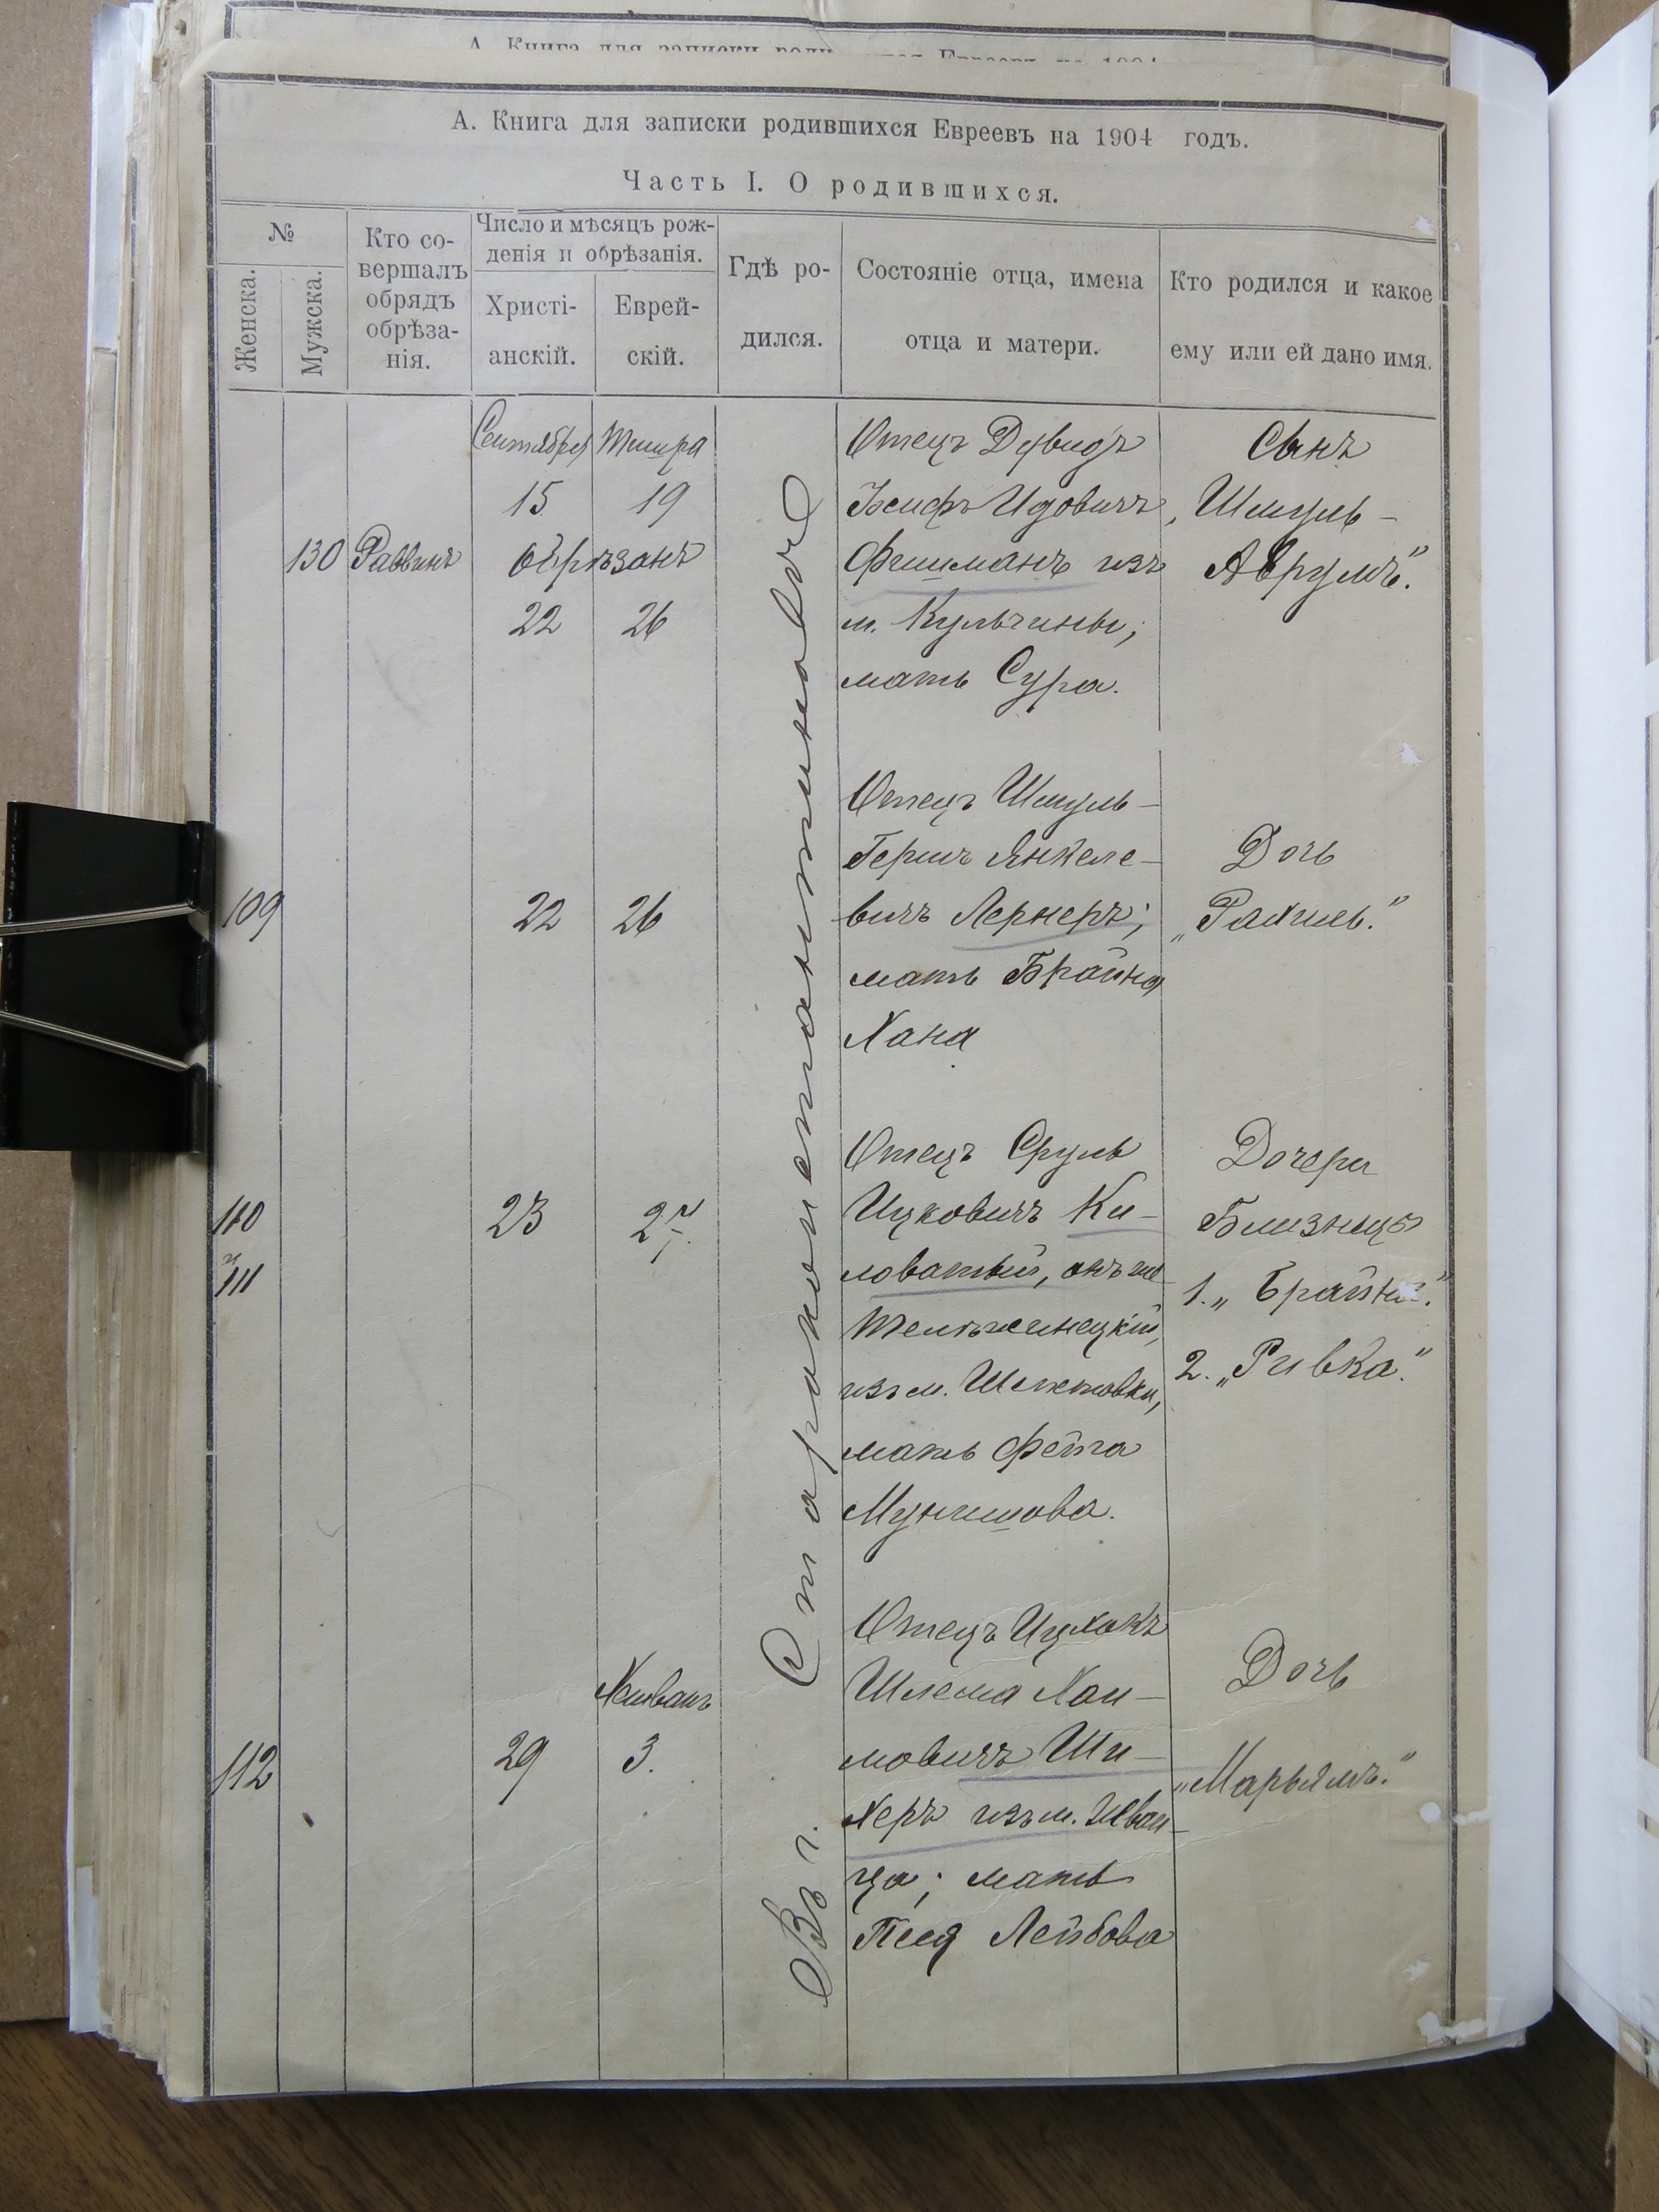 А. Книга для записки родившихся Евреевъ на 1904 годъ.
Часть I. О родившихся.
№
Женска.
Мужска.
Кто со-
вершалъ
обрядъ
обрѣза-
нія.
Число и мѣсяцъ рож-
денія и обрѣзанія.
Христі-
анскій.
Еврей-
скій.
Гдѣ ро-
дился.
Состояніе отца, имена
отца и матери.
Кто родился и какое
ему или ей дано имя.
Въ г. Староконстантиновѣ
130
Раввинъ
Сентября Тишра
15 19
Обрѣзанъ
22 26
Отецъ Дувидъ
Іосифъ Идовичъ
Фишманъ изъ
м. Кульчины;
мать Сура.
Сынъ
„Шмуль-
Аврумъ".
109
22 26
Отецъ Шмуль-
Гершъ Янкеле-
вичъ Лернеръ;
мать Брайна
Хана
Дочь
„Рахиль."
110
и
111
23 27.
Отецъ Сруль
Ицковичъ Ки-
ловатый, онъ же
из м. Шепетовки,
мать Фейга
Мунишова.
Дочери
Близнецы
1. „Брайна."
2. „Ривка."
112
Хешванъ
29 3.
Отецъ Ицхокъ
Шлема Хаи-
мовичъ Ши-
херъ изъ м. Жван-
ца; мать
Песя Лейбова
Дочь
„Марьямъ."